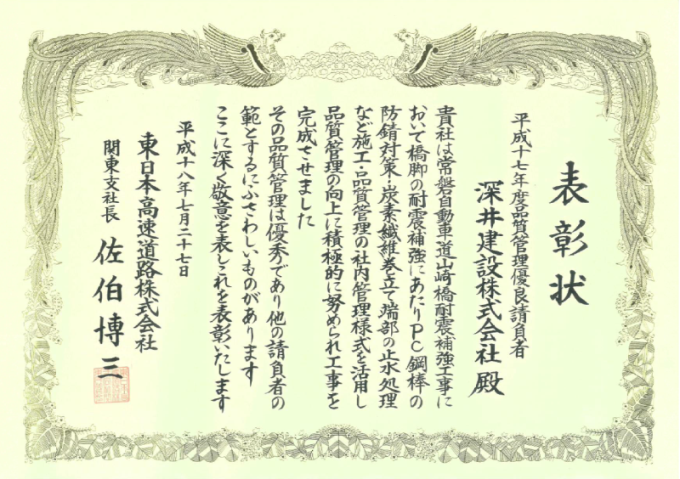 表彰状
平成十七年度品質管理優良請負者
深井建設株式会社 殿
貴社は常磐自動車道山崎橋耐震補強工事に
おいて橋脚の耐震補強にあたりPC鋼棒の
防錆対策・炭素繊維巻立て端部の止水処理
など施工・品質管理の社内管理様式を活用し
品質管理の向上に積極的に努められ工事を
完成させました
その品質管理は優秀であり他の請負者の
範とするにふさわしいものがあります
ここに深く敬意を表しこれを表彰いたします
平成十八年七月二十七日
東日本高速道路株式会社
関東支社長 佐伯博三